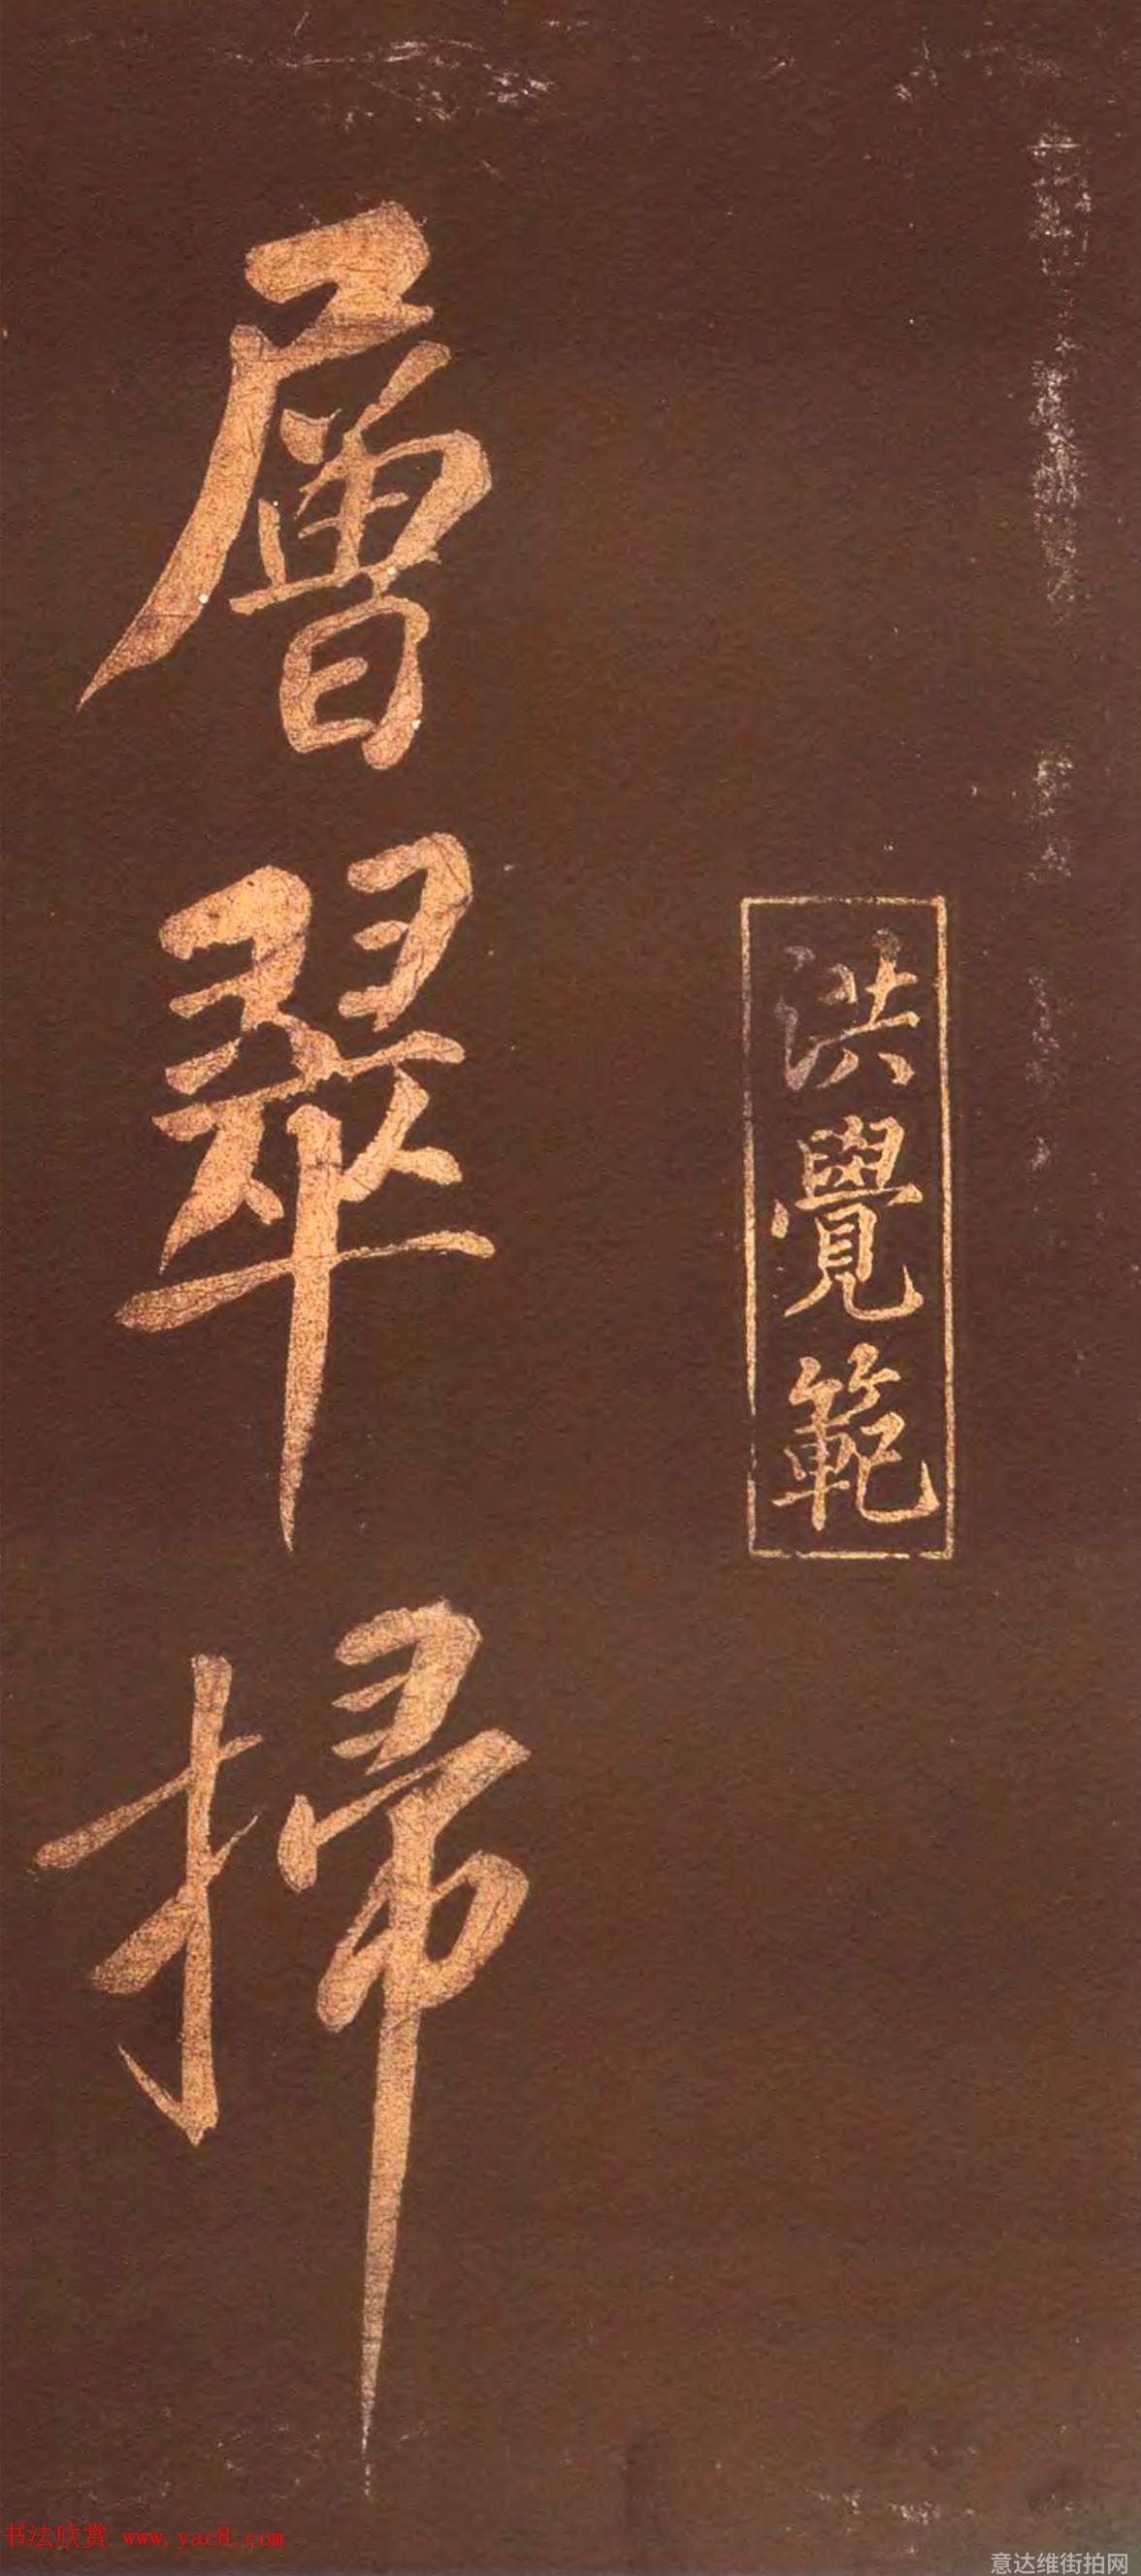 洪覺範
層翠掃
书法欣赏 www.yac8.com
意达维街拍网